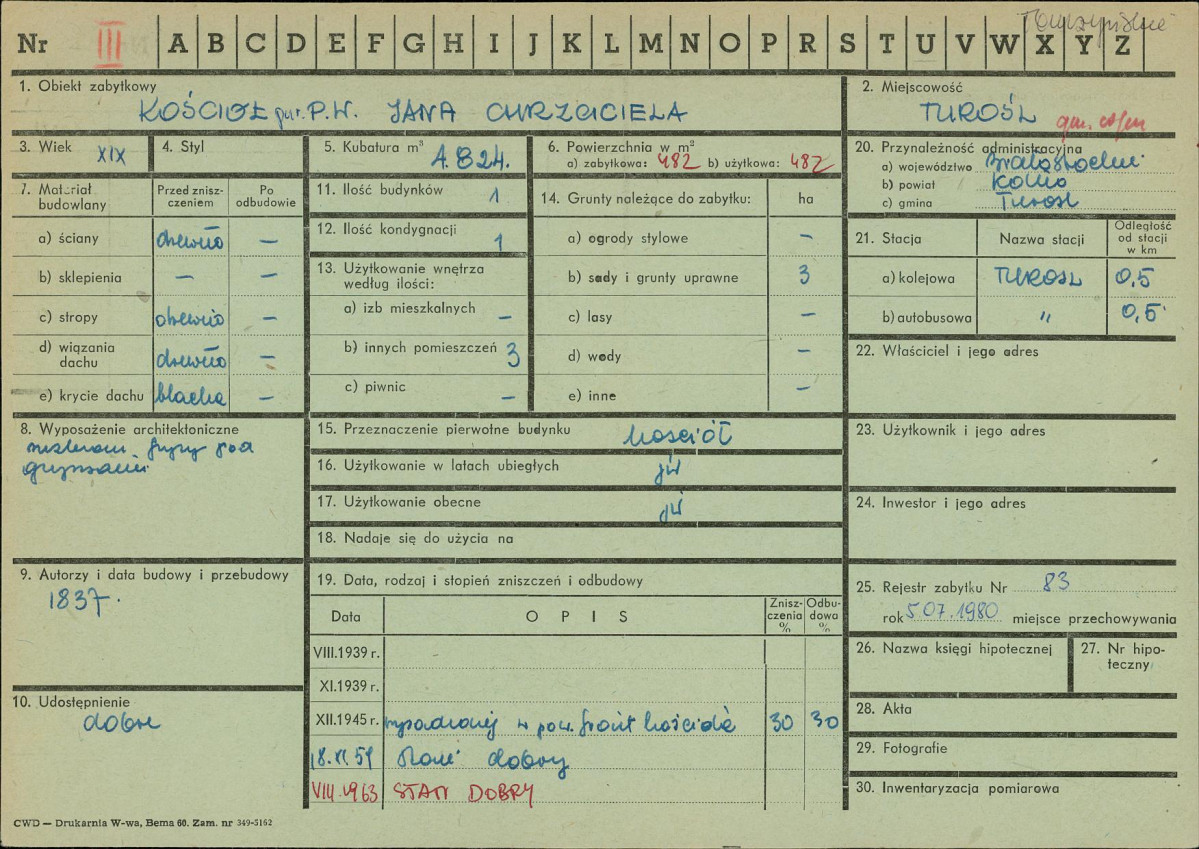 Nr III A B C D E F G H I J K L M N O P R S T U V W X Y Z
1. Obiekt zabytkowy
KOŚCIÓŁ par. P.W. JANA CHRZCICIELA
2. Miejscowość
TUROŚL
3. Wiek XIX
4. Styl
5. Kubatura m³ 4.824.
6. Powierzchnia w m²
a) zabytkowa: 482 b) użytkowa: 482
20. Przynależność administracyjna
a) województwo Białostockie
b) powiat Kolno
c) gmina Turośl
7. Materiał budowlany
Przed zniszczeniem
Po odbudowie
a) ściany drewno —
b) sklepienia — —
c) stropy drewno —
d) wiązania dachu drewno —
e) krycie dachu blacha —
11. Ilość budynków 1
12. Ilość kondygnacji 1
13. Użytkowanie wnętrza
według ilości:
a) izb mieszkalnych —
b) innych pomieszczeń 3
c) piwnic —
14. Grunty należące do zabytku: ha
a) ogrody stylowe —
b) sady i grunty uprawne 3
c) lasy —
d) wody —
e) inne —
21. Stacja
Nazwa stacji
Odległość od stacji w km
a) kolejowa TUROSL 0,5
b) autobusowa " 0,5
22. Właściciel i jego adres
8. Wyposażenie architektoniczne
pod
gzymsami
15. Przeznaczenie pierwotne budynku kościół
16. Użytkowanie w latach ubiegłych jw
17. Użytkowanie obecne jw
18. Nadaje się do użycia na
23. Użytkownik i jego adres
24. Inwestor i jego adres
9. Autorzy i data budowy i przebudowy
1837.
19. Data, rodzaj i stopień zniszczeń i odbudowy
Data
O P I S
Zniszczenia %
Odbudowa %
VIII.1939 r.
XI.1939 r.
XII.1945 r. front kościoła 30 30
18.XI.59 Stan dobry
VIII.1963 STAN DOBRY
25. Rejestr zabytku Nr 83
rok 5.07.1980 miejsce przechowywania
26. Nazwa księgi hipotecznej
27. Nr hipoteczny
10. Udostępnienie
dobre
28. Akta
29. Fotografie
30. Inwentaryzacja pomiarowa
CWD — Drukarnia W-wa, Bema 60. Zam. nr 349-5162